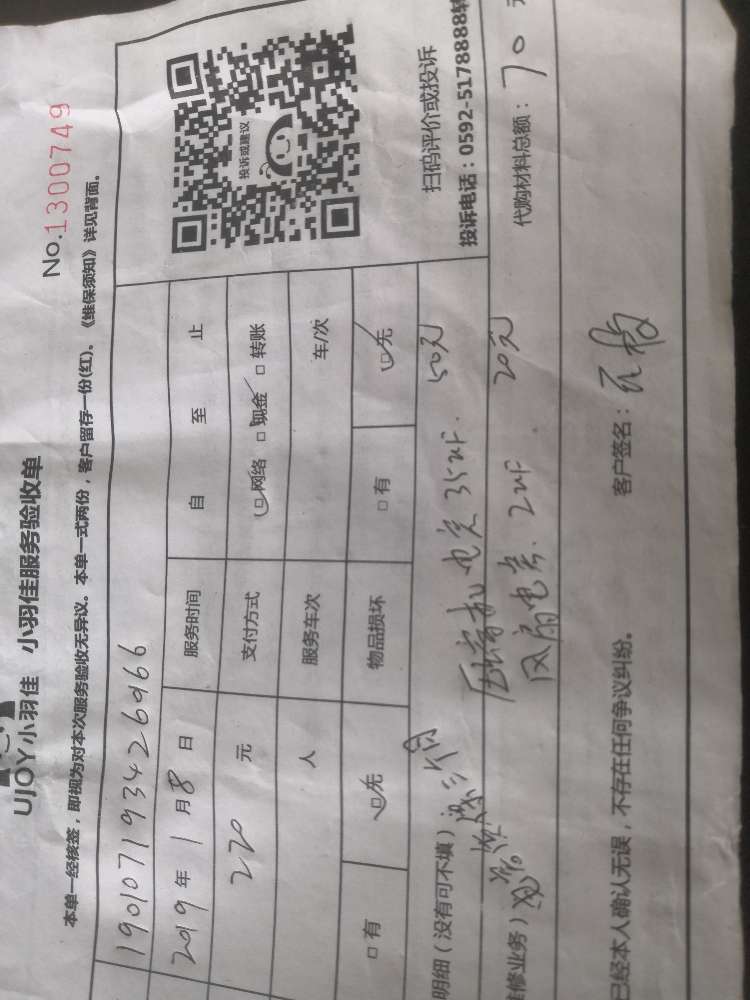 UJOY小羽佳 小羽佳服务验收单
No.1300749
本单一经核签，即视为对本次服务验收无异议。本单一式两份，客户留存一份(红)。《维保须知》详见背面。
190107193426966
2019 年 1 月 8 日 服务时间 自 至 止
220 元 支付方式 □网络 □现金 □转账
人 服务车次 车/次
□有 □无 物品损坏 □有 □无
投诉或建议
扫码评价或投诉
投诉电话：0592-5178888转
明细（没有可不填） 压缩机电容35uF. 50元
修业务） 风扇电容. 2uF. 20元 代购材料总额：70 元
已经本人确认无误，不存在任何争议纠纷。 客户签名：